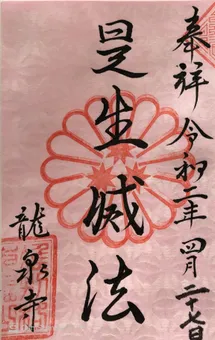 奉祥 令和二年 四月二十七日
是生滅法
龍泉寺